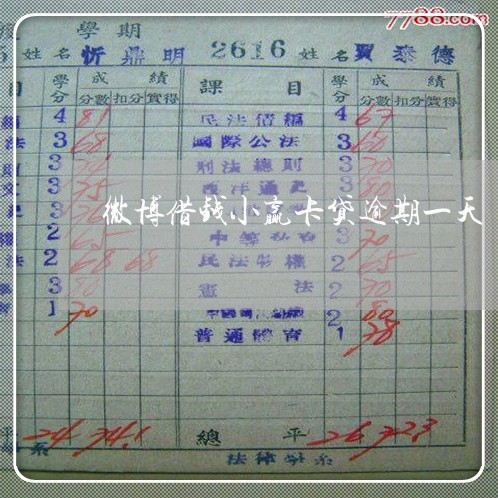 7788.com
度 學期
姓名 忻鼎明 2616 姓名 賈泰德
目 學分 成績 分數 扣分 實得 課目 學分 成績 分數 扣分 實得
編 4 81 民法債編 4 67
法 3 68 國際公法 3 60
則 3 刑法總則 3 70
3 75 西洋通史 3 80
3
微博借钱小赢卡贷逾期一天
權 2 65 3 70
法 2 68 68 民法物權 2 65
3 80 憲法 2 70
育 1 70 2 80
普通體育 1 78
平 24 74.1 總平 26 72.3
系 法律學系